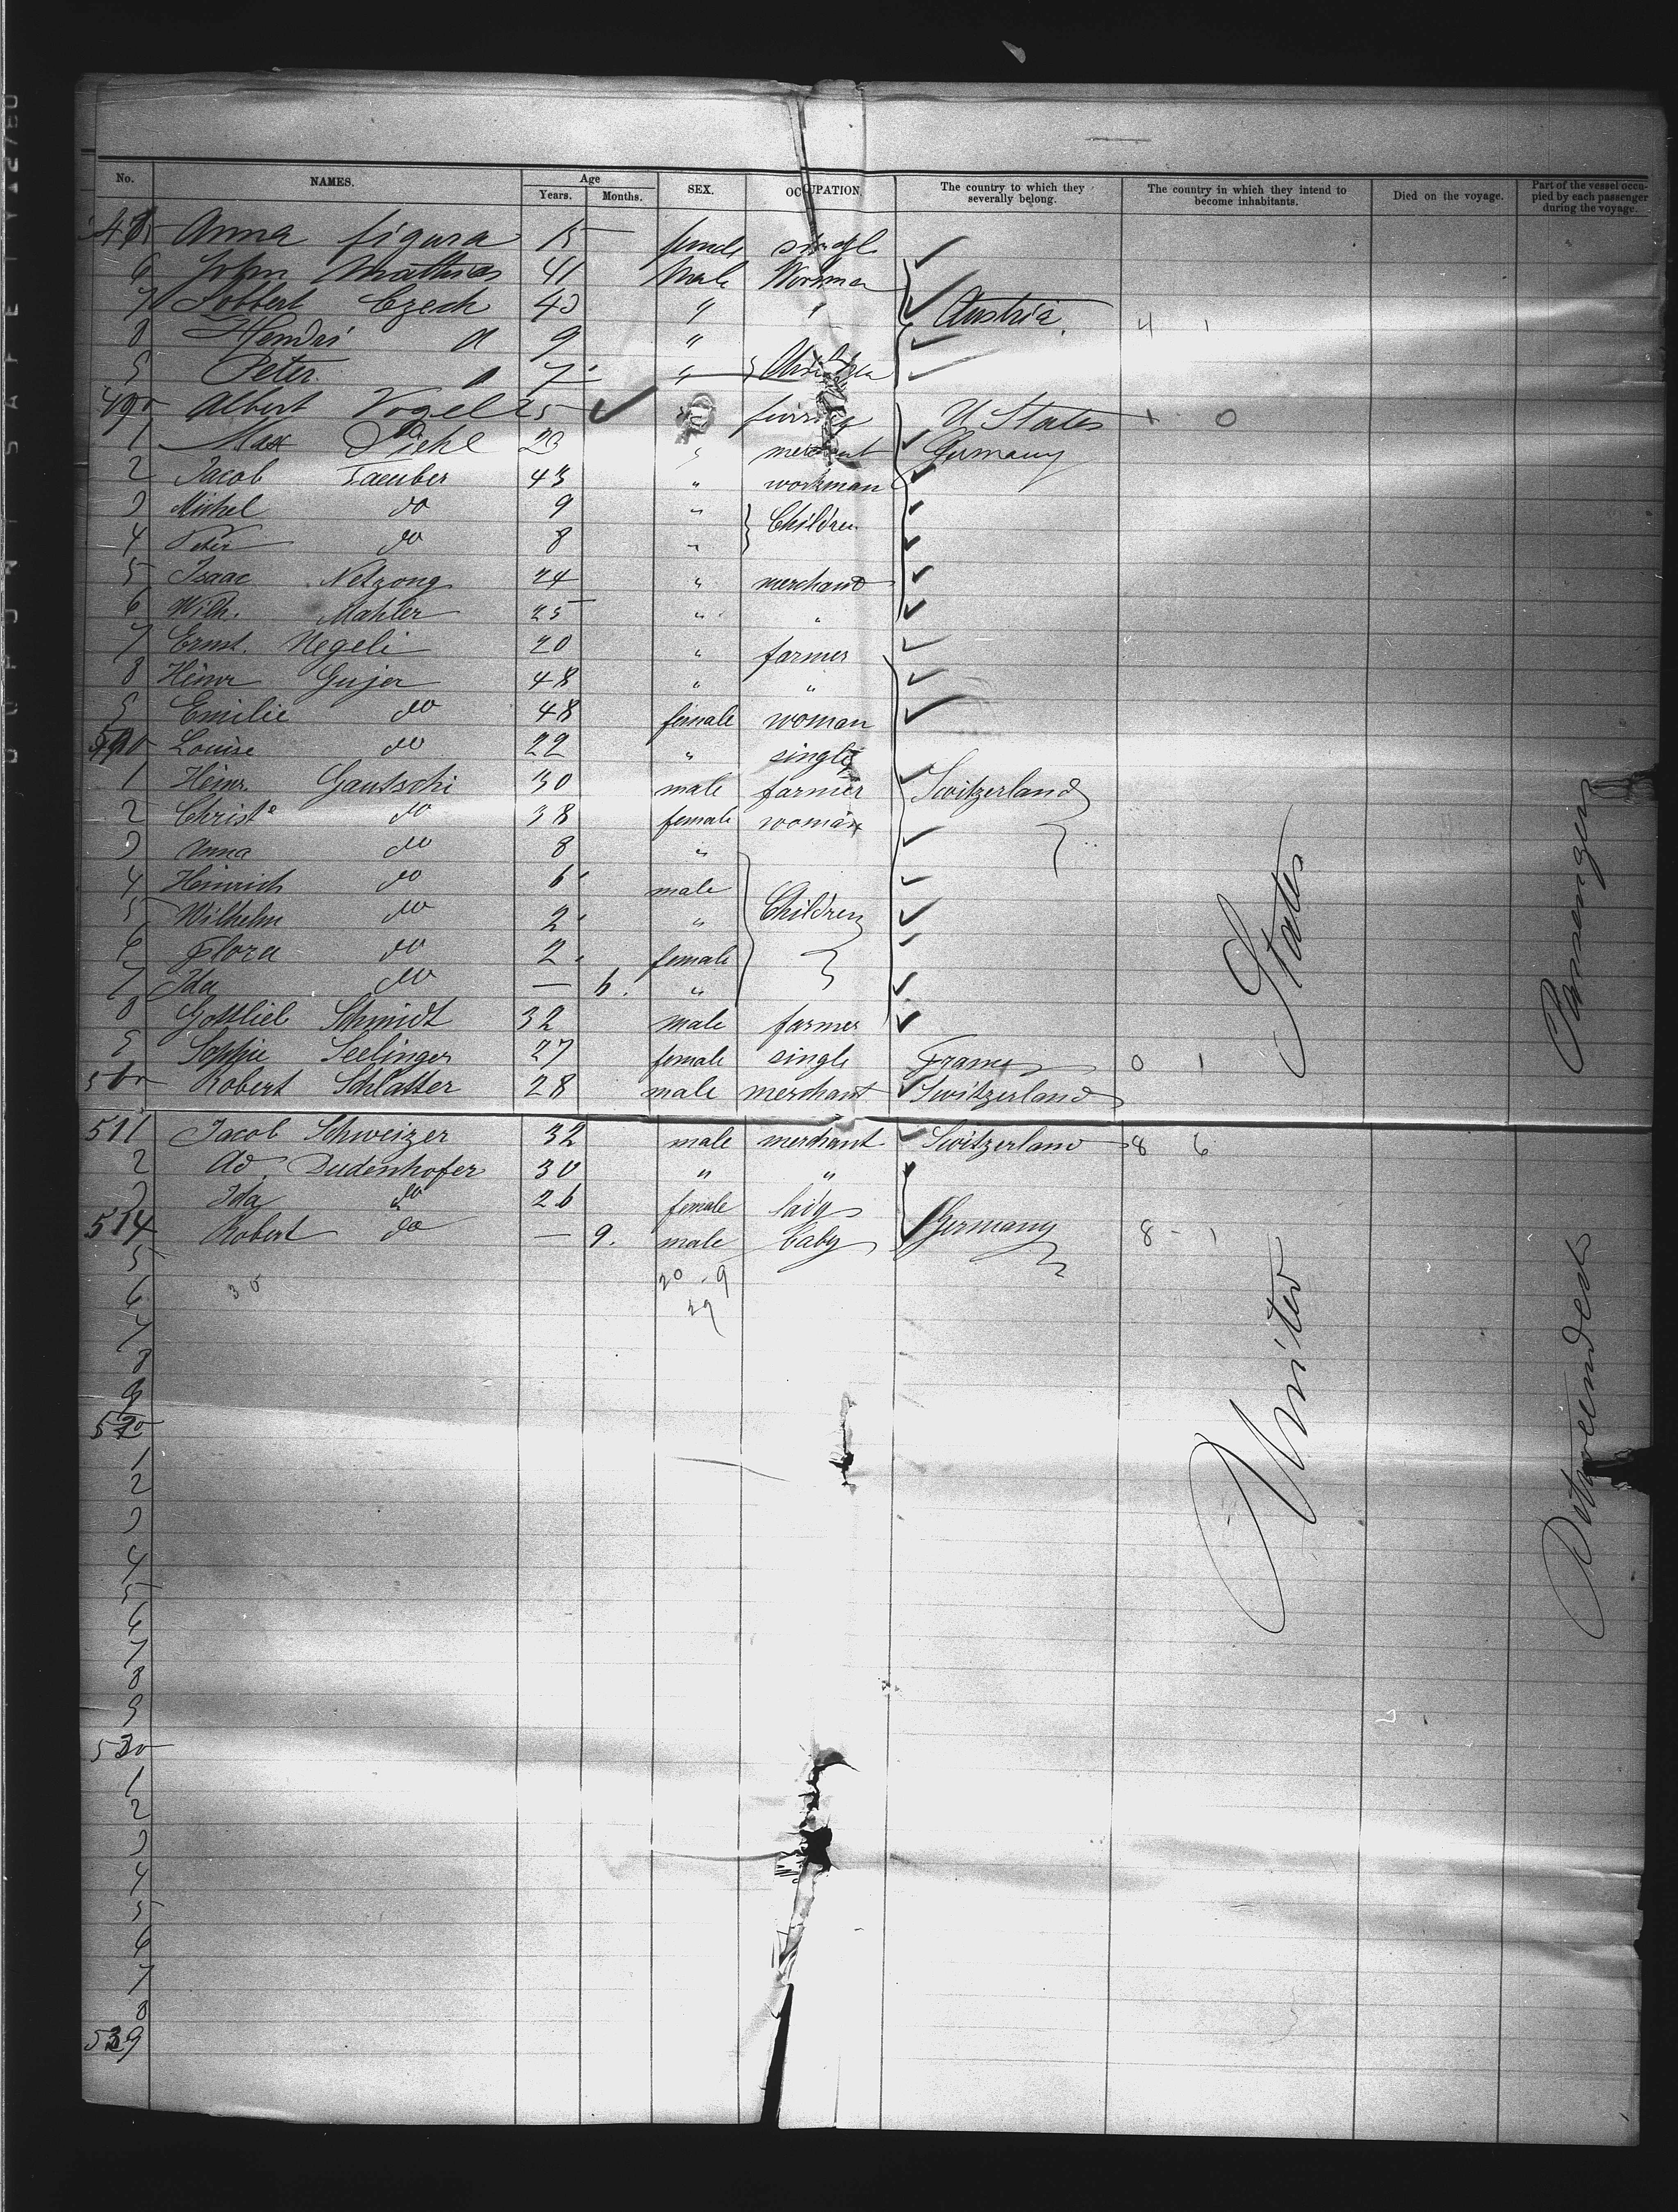 No. NAMES. Age Years. Months. SEX. OCCUPATION The country to which they severally belong. The country in which they intend to become inhabitants. Died on the voyage. Part of the vessel occupied by each passenger during the voyage.
Anna figura 15 single
6 John Mathias 41 Male
7 Czech 40 " " Austria. 4 1
8 9 "
9 Peter 7 "
490 Albert Vogel 25 U States 1 0
1 Max Diehl 23 " merchant Germany
2 Jacob Taeuber 43 " workman
3 Michel do 9 " Children
4 Peter do 8 "
5 Isaac Netzong 24 " merchand
6 Wilh. Mahler 25 " "
7 Ernst. Negeli 20 " farmer
8 Heinr Gujer 48 " "
9 Emilie do 48 female woman
500 Louise do 22 " single
1 Heinr. Gautschi 30 male farmer Switzerland
2 Christe do 38 female woman
3 Anna do 8 "
4 Heinrich do 6 male
5 Wilhelm do 2 " Children
6 Flora do 2 female
7 Ida do — 6. "
8 Gottlieb Schmidt 32 male farmer
9 Sophie Seelinger 27 female single France 0 1
510 Robert Schlatter 28 male merchant Switzerland
511 Jacob Schweizer 32 male merchant Switzerland 8 6
2 Ad. Dudenhofer 30 " "
3 Ida do 26 female lady
514 Robert do — 9. male baby Germany 8 - 1
5 20 - 9
6 30 29
7
8
9
520
1
2
3
4
5
6
7
8
9
530
1
2
3
4
5
6
7
8
539
United States
Betweendeck Passengers